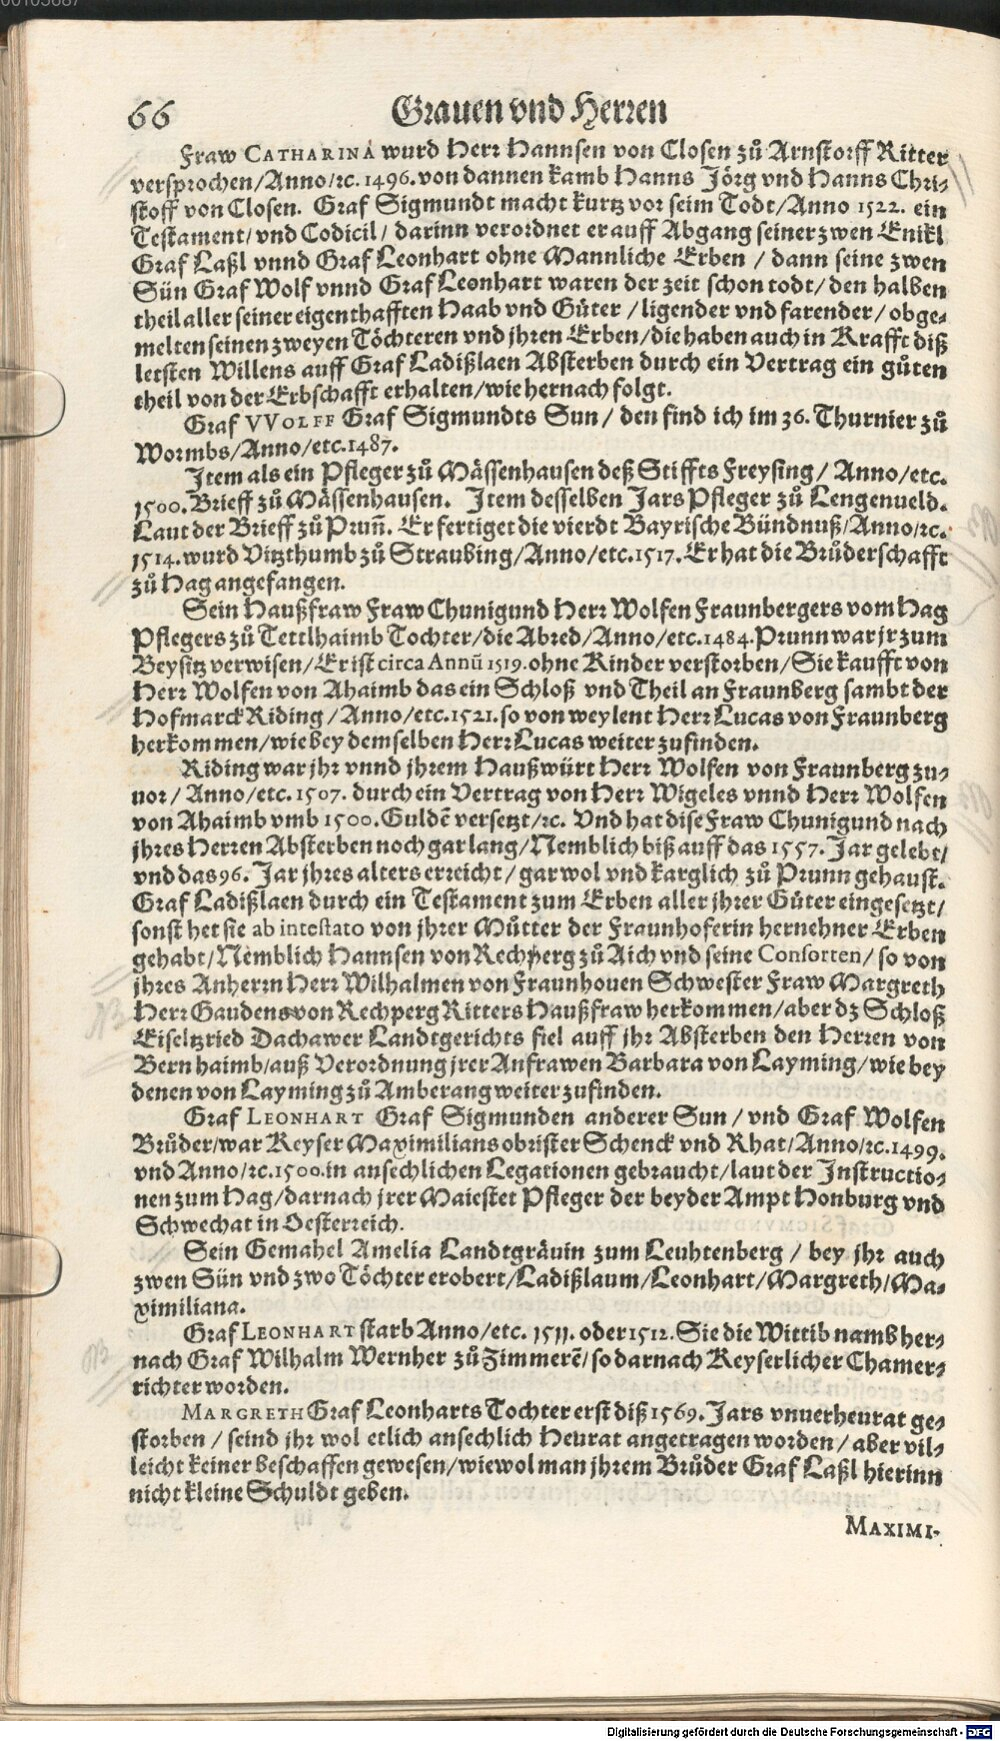 66 Grauen vnd Herren
Fraw CATHARINA wurd Herr Hannsen von Closen zů Arnstorff Ritter
versprochen/Anno/ꝛc. 1496. von dannen kamb Hanns Jörg vnd Hanns Chri-
stoff von Closen. Graf Sigmundt macht kurtz vor seim Todt/Anno 1522. ein
Testament/vnd Codicil/ darinn verordnet er auff Abgang seiner zwen Enikl
Graf Laßl vnnd Graf Leonhart ohne Mannliche Erben / dann seine zwen
Sün Graf Wolf vnnd Graf Leonhart waren der zeit schon todt/ den halben
theil aller seiner eigenthafften Haab vnd Güter / ligender vnd farender/ obge-
melten seinen zweyen Töchteren vnd jhren Erben/die haben auch in Krafft diß
letsten Willens auff Graf Ladißlaen Absterben durch ein Vertrag ein gůten
theil von der Erbschafft erhalten/wie hernach folgt.
Graf VVOLFF Graf Sigmundts Sun / den find ich im 36. Thurnier zů
Wormbs/Anno/etc. 1487.
Item als ein Pfleger zů Mässenhausen deß Stiffts Freysing / Anno/etc.
1500. Brieff zů Mässenhausen. Item desselben Jars Pfleger zů Lengenueld.
Laut der Brieff zů Prun̄. Er fertiget die vierdt Bayrische Bündnuß/Anno/ꝛc.
1514. wurd Vitzthumb zů Straubing/Anno/etc. 1517. Er hat die Brůderschafft
zů Hag angefangen.
Sein Haußfraw Fraw Chunigund Herr Wolfen Fraunbergers vom Hag
Pflegers zů Tettlhaimb Tochter/die Abred/Anno/etc. 1484. Prunn war jr zum
Beysitz verwisen/Er ist circa Annū 1519. ohne Kinder verstorben/Sie kaufft von
Herr Wolfen von Ahaimb das ein Schloß vnd Theil an Fraunberg sambt der
Hofmarck Riding / Anno/etc. 1521. so von weylent Herr Lucas von Fraunberg
herkommen/wie bey demselben Herr Lucas weiter zufinden.
Riding war jhr vnnd jhrem Haußwürt Herr Wolfen von Fraunberg zu-
uor / Anno/etc. 1507. durch ein Vertrag von Herr Wigeles vnnd Herr Wolfen
von Ahaimb vmb 1500. Guldē versetzt/ꝛc. Vnd hat dise Fraw Chunigund nach
jhres Herren Absterben noch gar lang/Nemblich biß auff das 1557. Jar gelebt/
vnd das 96. Jar jhres alters erreicht / gar wol vnd karglich zů Prunn gehaust.
Graf Ladißlaen durch ein Testament zum Erben aller jhrer Güter eingesetzt/
sonst het sie ab intestato von jhrer Můtter der Fraunhoferin hernehner Erben
gehabt/Nemblich Hannsen von Rechperg zů Aich vnd seine Consorten/ so von
jhres Anherrn Herr Wilhalmen von Fraunhouen Schwester Fraw Margreth
Herr Gaudens von Rechperg Ritters Haußfraw herkommen/aber dz Schloß
Eiseltzried Dachawer Landtgerichts fiel auff jhr Absterben den Herren von
Bernhaimb/auß Verordnung jrer Anfrawen Barbara von Layming/wie bey
denen von Layming zů Amberang weiter zufinden.
Graf LEONHART Graf Sigmunden anderer Sun / vnd Graf Wolfen
Brůder/war Keyser Maximilians obrister Schenck vnd Rhat/Anno/ꝛc. 1499.
vnd Anno/ꝛc. 1500. in ansechlichen Legationen gebraucht/laut der Instructio-
nen zum Hag/darnach jrer Maiestet Pfleger der beyder Ampt Honburg vnd
Schwechat in Oesterreich.
Sein Gemahel Amelia Landtgräuin zum Leuhtenberg / bey jhr auch
zwen Sün vnd zwo Töchter erobert/Ladißlaum/Leonhart/Margreth/Ma-
ximiliana.
Graf LEONHART starb Anno/etc. 1511. oder 1512. Sie die Wittib namb her-
nach Graf Wilhalm Wernher zů Zimmerē/so darnach Keyserlicher Chamer-
richter worden.
MARGRETH Graf Leonharts Tochter erst diß 1569. Jars vnuerheurat ge-
storben / seind jhr wol etlich ansechlich Heurat angetragen worden / aber vil-
leicht keiner beschaffen gewesen/wiewol man jhrem Brůder Graf Laßl hierinn
nicht kleine Schuldt geben.
MAXIMI-
Digitalisierung gefördert durch die Deutsche Forschungsgemeinschaft - DFG